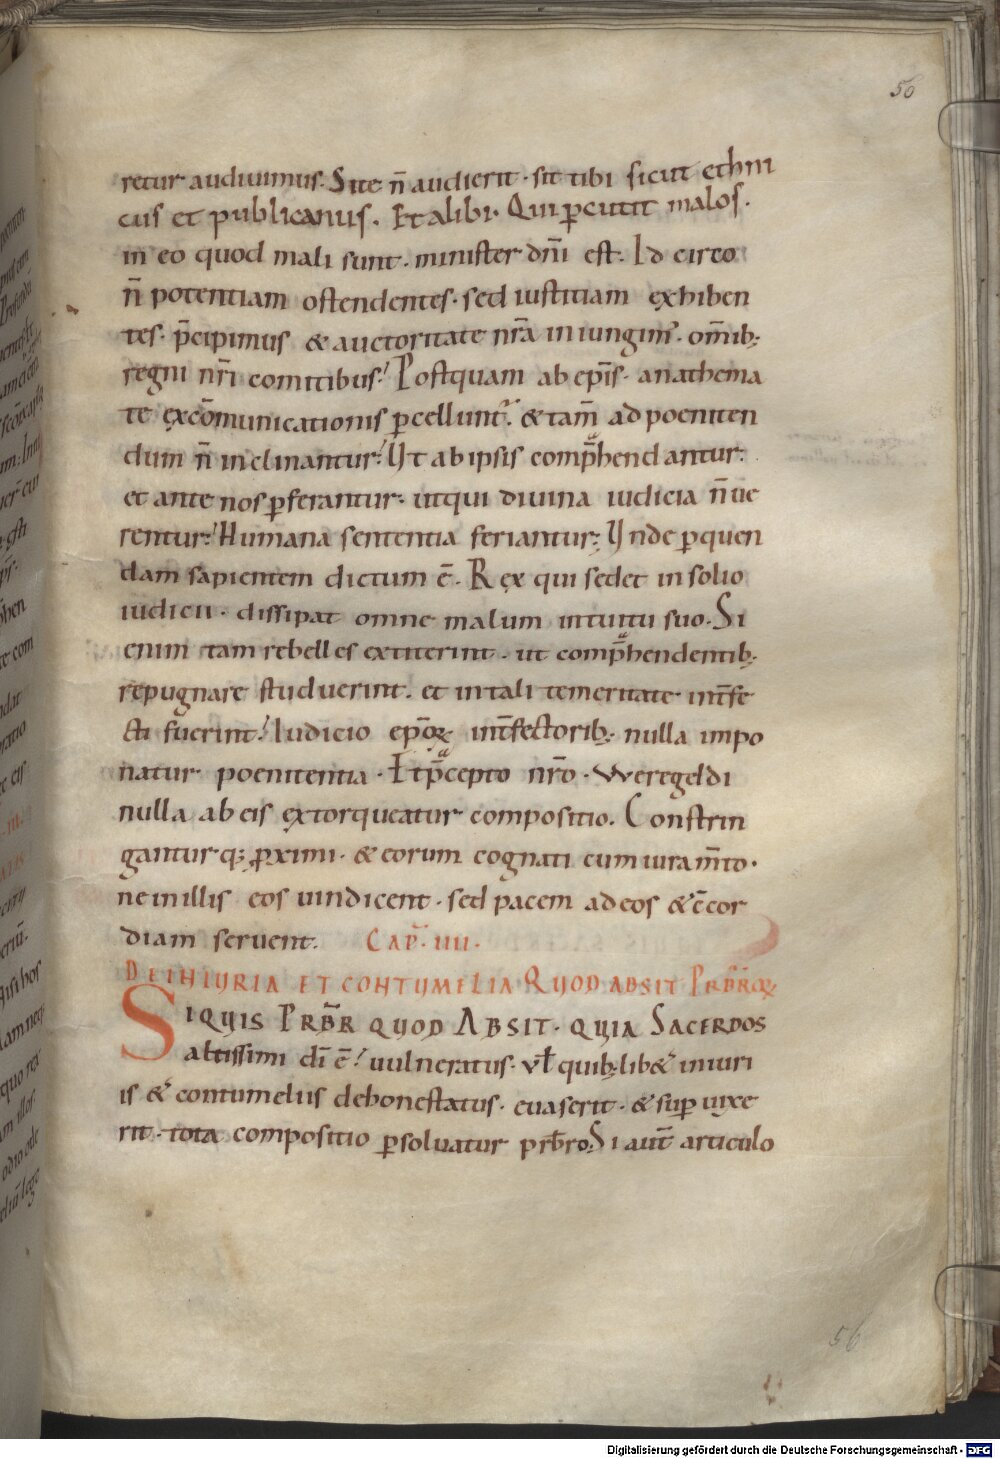 50
retur audiuimus. Site n̄ audierit · sit tibi sicut ethni
cus et publicanus. Et alibi. Qui ꝑcutit malos.
in eo quod mali sunt. minister dn̄i est. Id circo
n̄ potentiam ostendentes. sed iustitiam exhiben
tes. p̄cipimus & auctoritate nr̄a iniungim̄. om̄ib;
regni nr̄i comitibus! Postquam ab ep̄is. anathema
te excōmunicationis ꝑcellunt̄. & tam̄ ad poeniten
dum n̄ inclinantur: Ut ab ipsis comp̄hendantur:
et ante nos ꝑferantur: ut qui diuina iudicia n̄ ue
rentur: Humana sententia feriantur: Unde ꝑ quen
dam sapientem dictum ē. Rex qui sedet in solio
iudicii · dissipat omne malum intuitu suo. Si
enim tam rebelles extiterint · ut comp̄hendentib;
repugnare studuerint. et in tali temeritate int̄fe
cti fuerint! Iudicio ep̄oꝝ int̄fectorib; nulla impo
natur poenitentia · Et p̄cepto nr̄o · Weregeldi
nulla ab eis extorqueatur compositio. Constrin
gantur q; ꝓximi · & eorum cognati cum iuram̄to ·
ne in illis eos uindicent · sed pacem ad eos & c̄cor
diam seruent. CAP̄. IIII.
DE INIURIA ET CONTUMELIA QUOD ABSIT PRB̄ROꝝ
SIQUIS PRB̄R QUOD ABSIT · QUIA SACERDOS
altissimi dī ē! uulneratus · vł quib; lib& iniuri
is & contumeliis dehonestatus · euaserit · & suꝑ uixe
rit · tota compositio ꝑsoluatur prb̄ro. Si aut̄ articulo
56
Digitalisierung gefördert durch die Deutsche Forschungsgemeinschaft - DFG